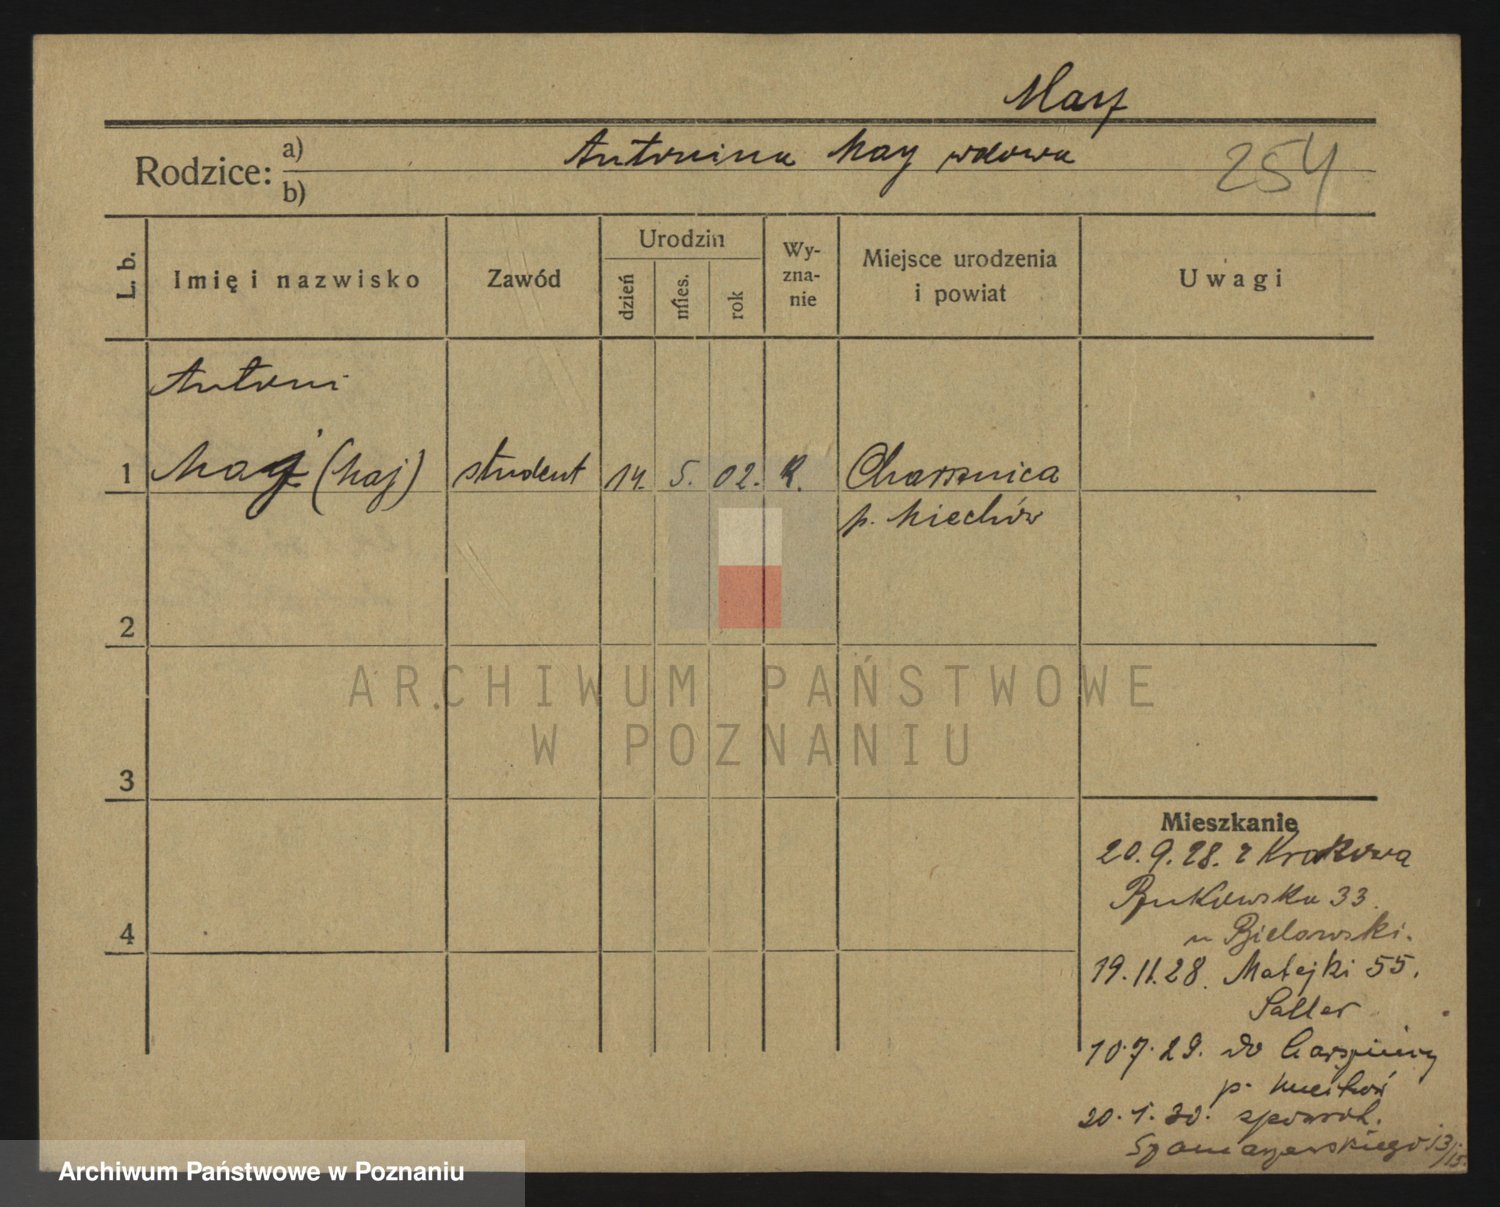 May
Rodzice: a) Antonina May wdowa
b)
254
L. b.
Imię i nazwisko
Zawód
Urodzin
dzień
mies.
rok
Wy-
zna-
nie
Miejsce urodzenia
i powiat
Uwagi
Antoni
1 May (Maj) student 14. 5. 02. R. Charsznica
p. Miechów
2
3
4
Mieszkanie
20.9.28. z Krakowa
Bukowska 33.
u Bielawski.
19.11.28. Matejki 55.
Saller
10.7.29. do Charsznicy
p. Miechów
20.1.30. spowrot.
Szamarzewskiego 13/15.
ARCHIWUM PAŃSTWOWE
W POZNANIU
Archiwum Państwowe w Poznaniu